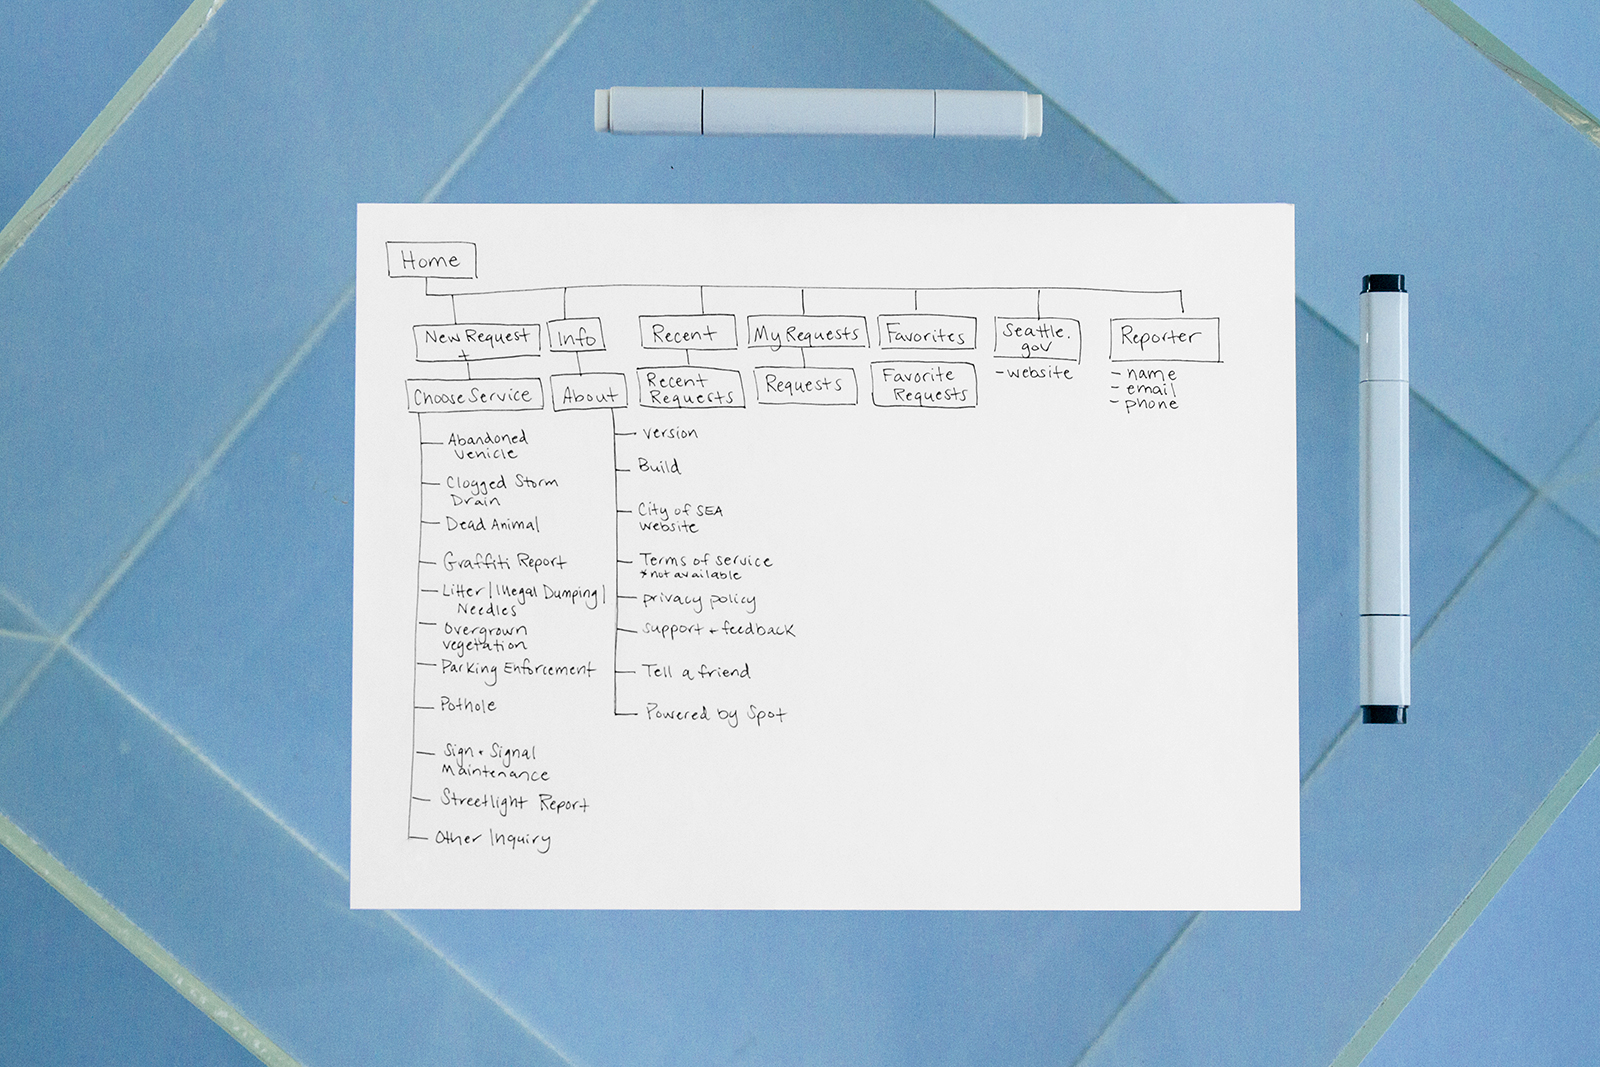 Home
New Request
+
Info
Recent
My Requests
Favorites
Seattle.
gov
Reporter
Choose Service
About
Recent
Requests
Requests
Favorite
Requests
- website
- name
- email
- phone
Abandoned
Vehicle
Clogged Storm
Drain
Dead Animal
Graffiti Report
Litter | Illegal Dumping |
Needles
Overgrown
vegetation
Parking Enforcement
Pothole
Sign + Signal
Maintenance
Streetlight Report
Other Inquiry
version
Build
City of SEA
website
Terms of service
*not available
privacy policy
support + feedback
Tell a friend
Powered by Spot